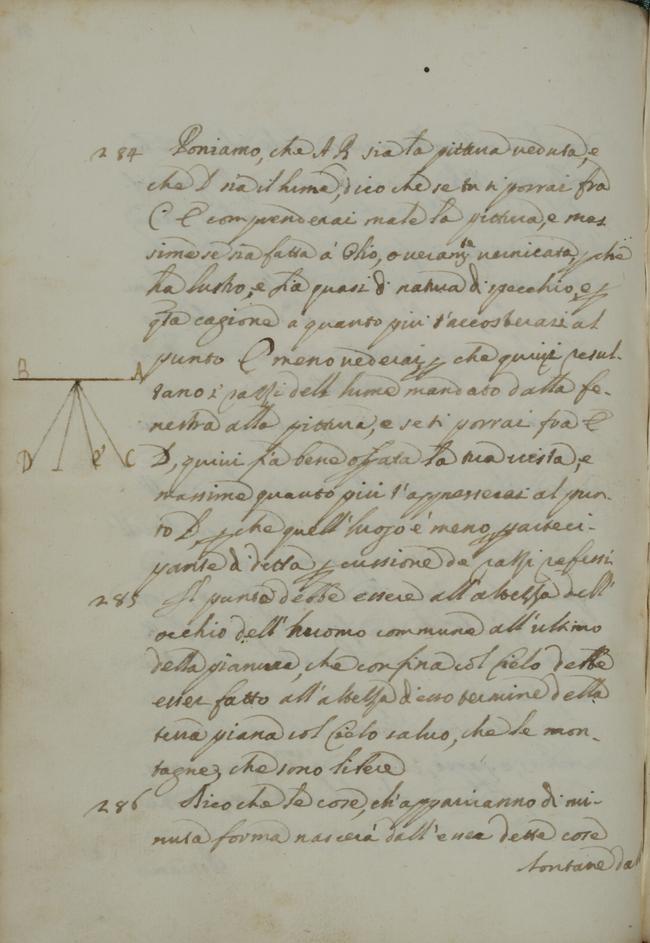 284 Poniamo, che A B sia la pittura veduta, e
che D sia il lume, dico che se tu ti porrai fra
C E comprenderai male la pittura, e mas
sime se sia fatta à Olio, overam.te vernicata, p che
ha lustro, e sia quasi di natura di specchio, e p
q.ta cagione a quanto più t'accosterai al
punto E meno vederai, p che quivi resul-
B A tano i razzi dell lume mandato dalla fe-
nestra alla pittura, e se ti porrai fra E
D E C D, quivi sia bene oprata la tua vista, e
massime quanto più t'appresserai al pun-
to D, p che quell'luogo è meno parteci-
pante di detta p cussione de razzi refessi
285 Il punto debbe essere all'altezza dell'
occhio dell'huomo commune all'ultimo
della pianura, che confina col Cielo debbe
esser fatto all'altezza di esso termine della
terra piana col Cielo salvo, che le mon-
tagne, che sono libere
286 Dico che le cose, ch'appariranno di mi-
nuta forma nascerà dall'essere dette cose
lontane da